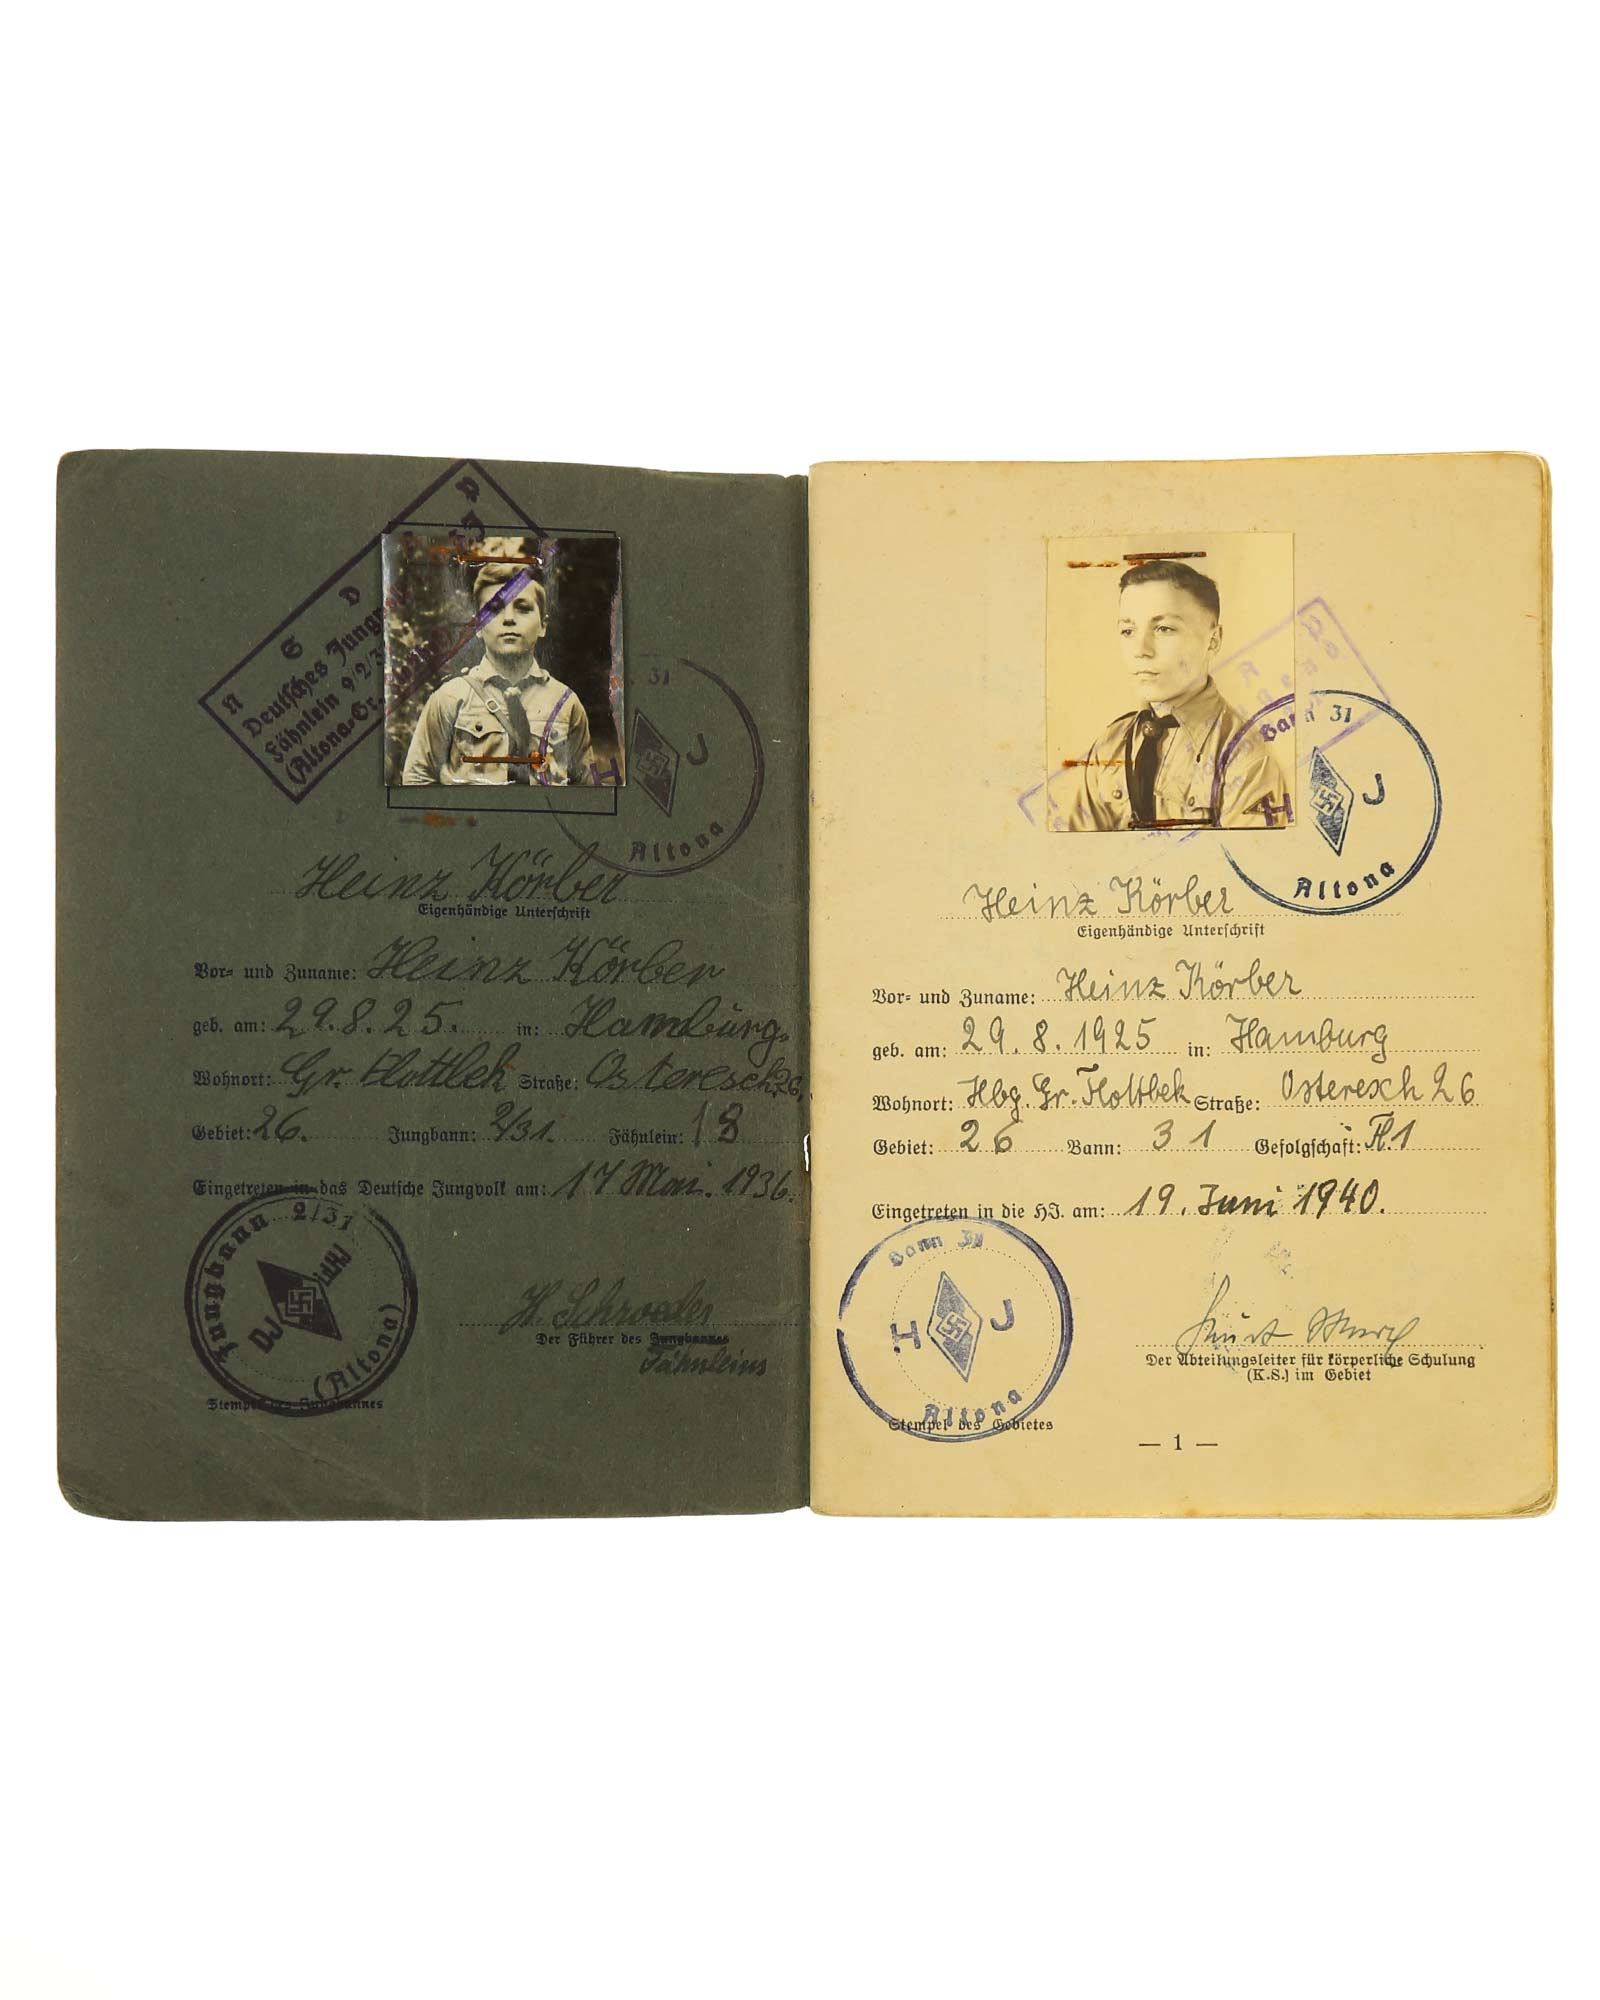 N S D A P
Deutsches Jungvolk
Fähnlein 9/2/31
(Altona-Gr.
31
H J
Altona
Heinz Körber
Eigenhändige Unterschrift
Vor- und Zuname: Heinz Körber
geb. am: 29.8.25. in: Hamburg.
Wohnort: Gr. Flottbek Straße: Osteresch 26,
Gebiet: 26. Jungbann: 2/31. Fähnlein: 18
Eingetreten in das Deutsche Jungvolk am: 17 Mai. 1936.
Jungbann 2/31
DJ
(Altona)
H. Schroeder
Der Führer des Jungbannes
Fähnleins
Stempel des Jungbannes
Bann 31
H J
Altona
Heinz Körber
Eigenhändige Unterschrift
Vor- und Zuname: Heinz Körber
geb. am: 29. 8. 1925 in: Hamburg
Wohnort: Hbg. Gr. Flottbek Straße: Osteresch 26
Gebiet: 26 Bann: 31 Gefolgschaft: Fl.1
Eingetreten in die HJ. am: 19. Juni 1940.
Bann 31
H J
Altona
Der Abteilungsleiter für körperliche Schulung
(K.S.) im Gebiet
Stempel des Gebietes
— 1 —